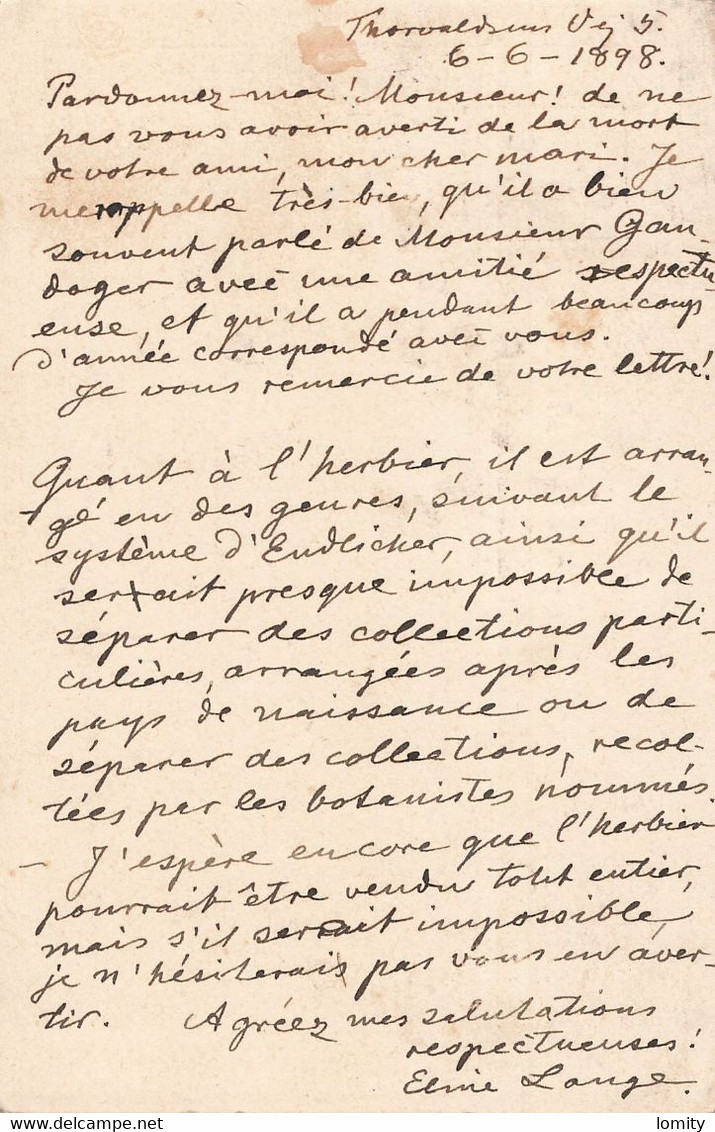 Thorvaldsens Vej 5.
6-6-1898.
Pardonnez-moi! Monsieur! de ne
pas vous avoir averti de la mort
de votre ami, mon cher mari. Je
me rappelle très-bien, qu'il a bien
souvent parlé de Monsieur Gan-
doger avec une amitié respectu-
euse, et qu'il a pendant beaucoup
d'année correspondé avec vous.
Je vous remercie de votre lettre!
Quant à l'herbier, il est arran-
gé en des genres, suivant le
système d'Endlicher, ainsi qu'il
serait presque impossible de
séparer des collections parti-
culières, arrangées après les
pays de naissance ou de
séparer des collections, recol-
tées par les botanistes nommés.
- J'espère encore que l'herbier
pourrait être vendu tout entier,
mais s'il serait impossible,
je n'hésiterais pas vous en aver-
tir. Agréez mes salutations
respectueuses!
Eline Lange.
lomity